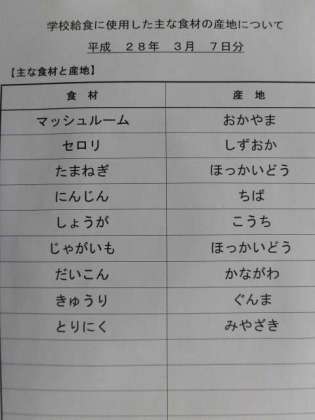 学校給食に使用した主な食材の産地について
平成 28年 3月 7日分
【主な食材と産地】
食 材 産 地
マッシュルーム おかやま
セロリ しずおか
たまねぎ ほっかいどう
にんじん ちば
しょうが こうち
じゃがいも ほっかいどう
だいこん かながわ
きゅうり ぐんま
とりにく みやざき